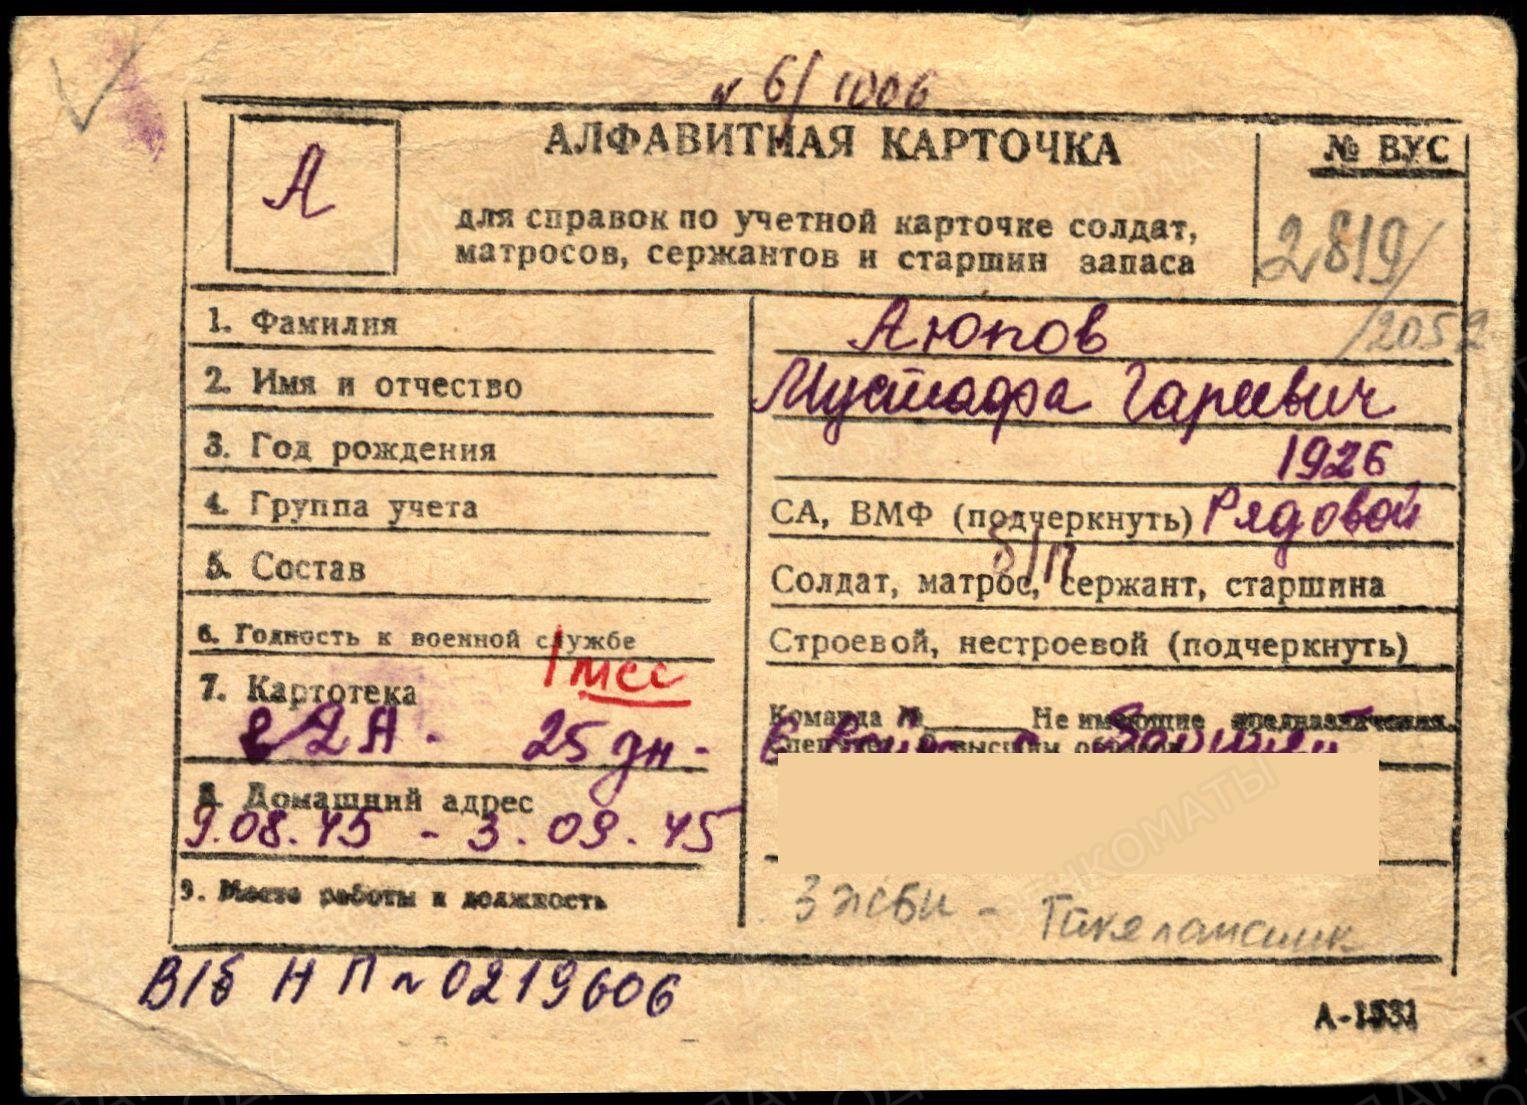 N 6/1006
А
АЛФАВИТНАЯ КАРТОЧКА
№ ВУС
для справок по учетной карточке солдат,
матросов, сержантов и старшин запаса
2819/
/2052
1. Фамилия
Аюпов
2. Имя и отчество
Мустафа Гареевич
3. Год рождения
1926
4. Группа учета
СА, ВМФ (подчеркнуть) Рядовой
5. Состав
Солдат, матрос, сержант, старшина
б/п
6. Годность к военной службе
Строевой, нестроевой (подчеркнуть)
1 мсс
7. Картотека
Команда № Не имеющие предназначения.
2А - 25 дн -
с Японией
8. Домашний адрес
9.08.45 - 3.09.45
9. Место работы и должность
З ЖБИ - Такелажник
В/б НП № 0219606
А-1531